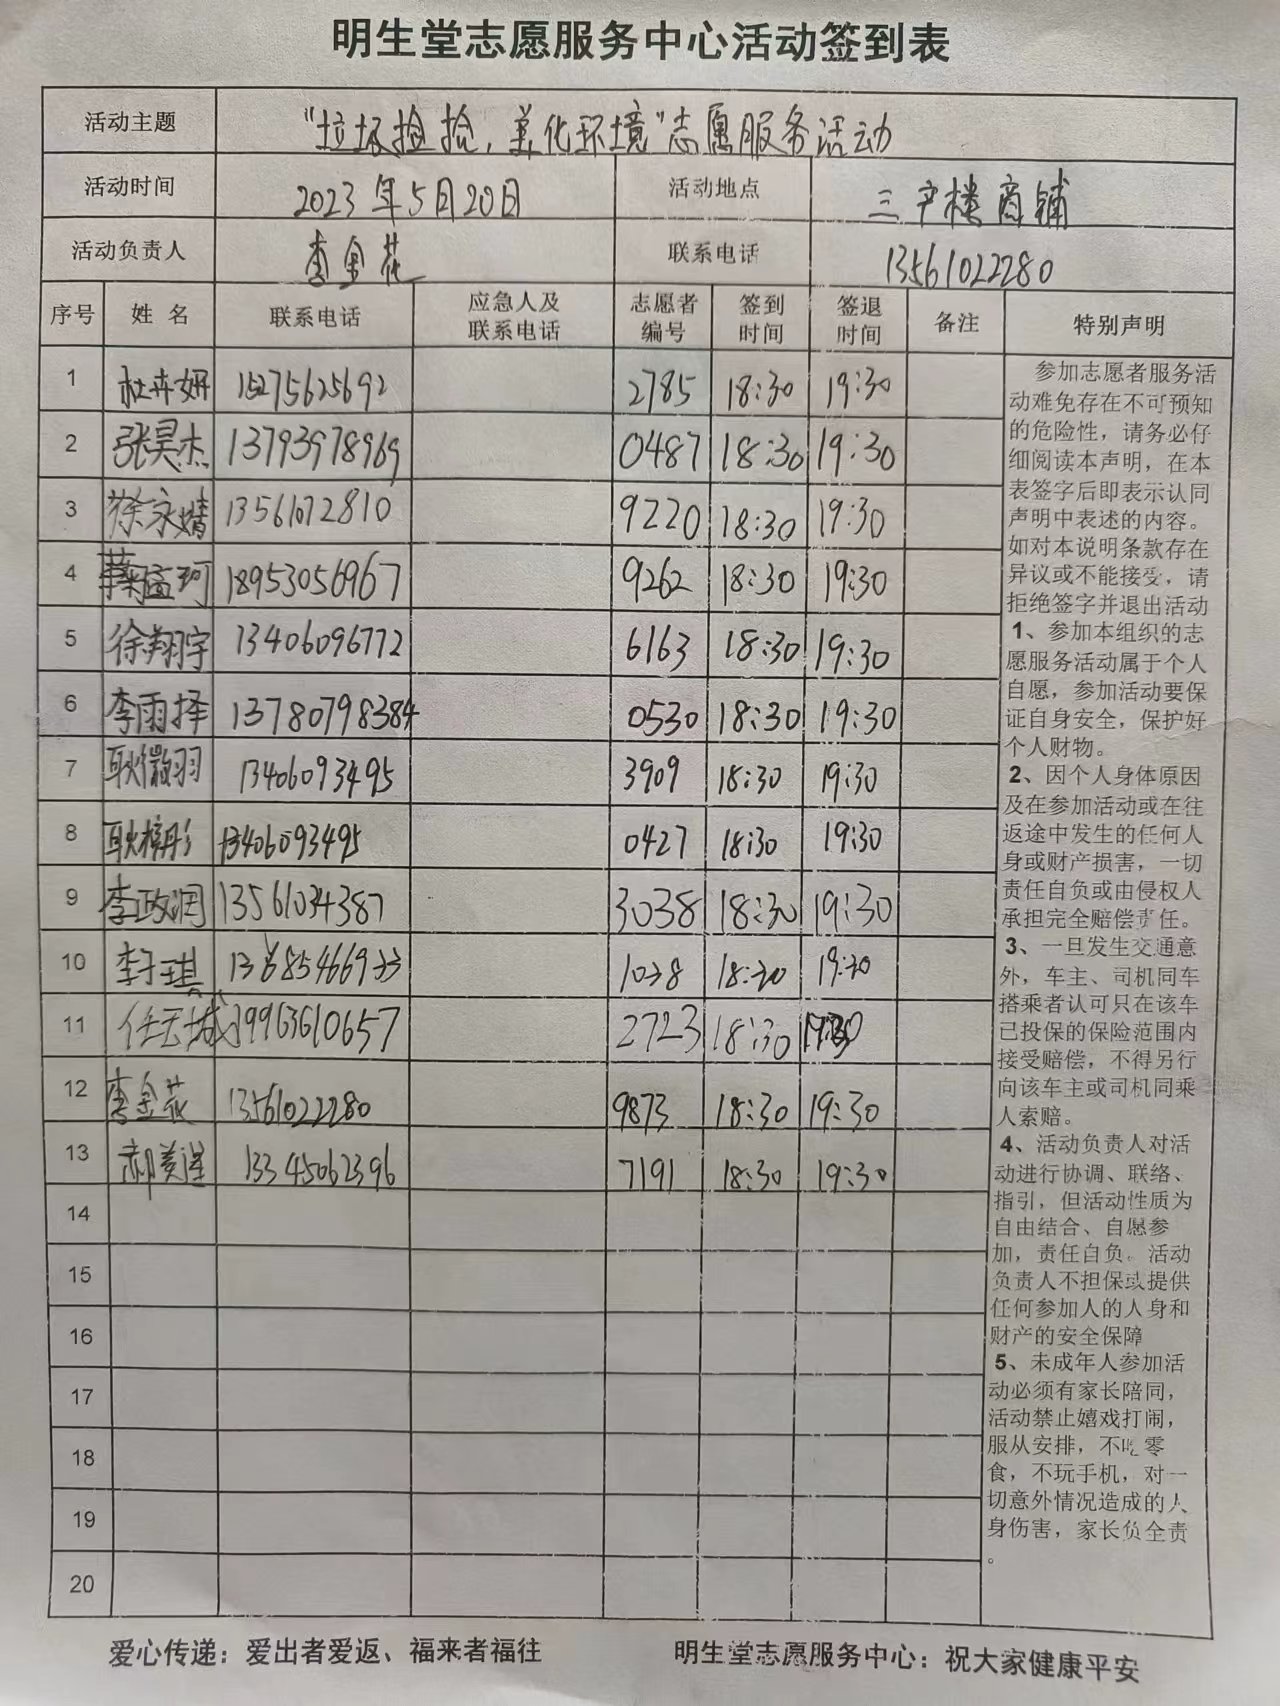 明生堂志愿服务中心活动签到表
活动主题 "垃圾捡拾,美化环境"志愿服务活动
活动时间 2023年5月20日 活动地点 三户楼商铺
活动负责人 李金花 联系电话 13561022280
序号 姓名 联系电话 应急人及联系电话 志愿者编号 签到时间 签退时间 备注 特别声明
1 杜卉妍 15275625692 2785 18:30 19:30
2 张昊杰 13793978969 0487 18:30 19:30
3 徐永婧 13561072810 9220 18:30 19:30
4 孟珂 18953056967 9262 18:30 19:30
5 徐翔宇 13406096772 6163 18:30 19:30
6 李雨择 13780798384 0530 18:30 19:30
7 耿微羽 13406093495 3909 18:30 19:30
8 耿梓彤 13406093495 0427 18:30 19:30
9 李政润 13561034387 3038 18:30 19:30
10 李子琪 1038 18:30 19:30
11 任天城 19963610657 2723 18:30 19:30
12 李金花 13561022280 9873 18:30 19:30
13 郝美滢 13345062396 7191 18:30 19:30
14
15
16
17
18
19
20
参加志愿者服务活
动难免存在不可预知
的危险性,请务必仔
细阅读本声明,在本
表签字后即表示认同
声明中表述的内容。
如对本说明条款存在
异议或不能接受,请
拒绝签字并退出活动
1、参加本组织的志
愿服务活动属于个人
自愿,参加活动要保
证自身安全,保护好
个人财物。
2、因个人身体原因
及在参加活动或在往
返途中发生的任何人
身或财产损害,一切
责任自负或由侵权人
承担完全赔偿责任。
3、一旦发生交通意
外,车主、司机同车
搭乘者认可只在该车
已投保的保险范围内
接受赔偿,不得另行
向该车主或司机同乘
人索赔。
4、活动负责人对活
动进行协调、联络、
指引,但活动性质为
自由结合、自愿参
加,责任自负。活动
负责人不担保或提供
任何参加人的人身和
财产的安全保障
5、未成年人参加活
动必须有家长陪同,
活动禁止嬉戏打闹,
服从安排,不吃零
食,不玩手机,对一
切意外情况造成的人
身伤害,家长负全责
。
爱心传递:爱出者爱返、福来者福往 明生堂志愿服务中心:祝大家健康平安